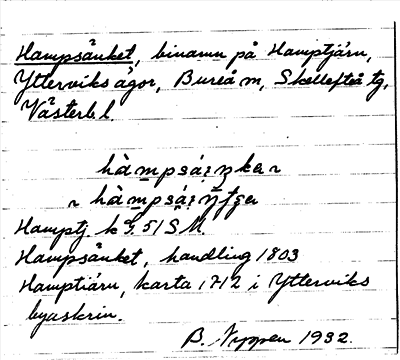 Hampsånket, binamn på Hamptjärn,
Ytterviks ägor, Bureå sn, Skellefteå tg,
Västerb. l.
Hamptj. k 51 S M
Hampsånket, handling 1803
Hamptiärn, karta 1712 i Ytterviks
byaskrin.
B. Nyppen 1932.